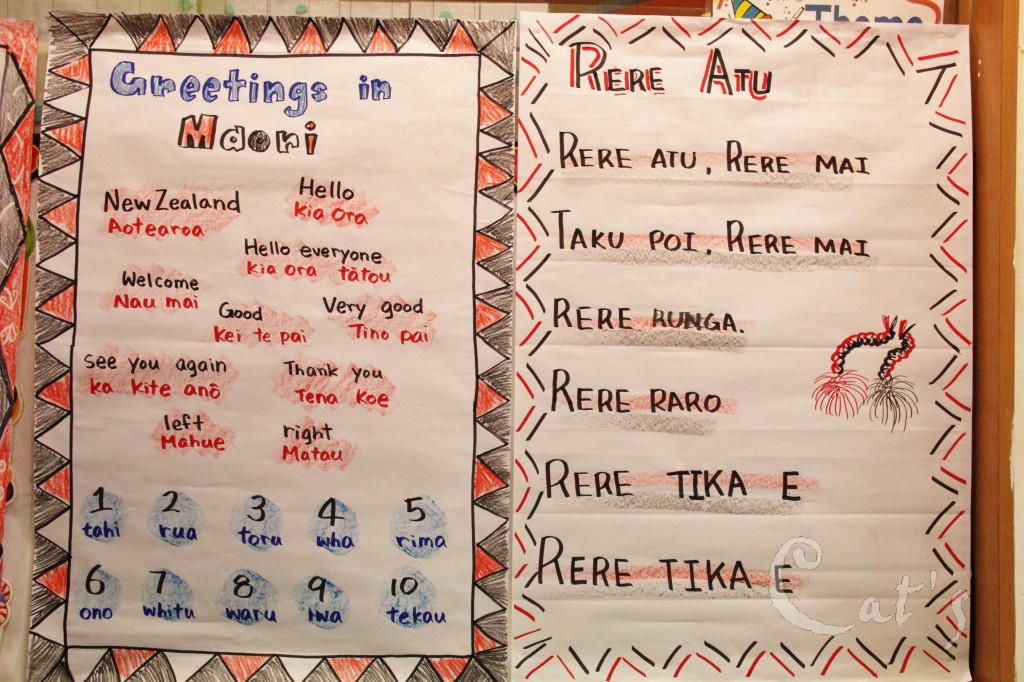 Theme
Greetings in
Maori
New Zealand
Aotearoa
Hello
Kia Ora
Hello everyone
Kia ora tàtou
Welcome
Nau mai
Good
Kei te pai
Very good
Tino pai
See you again
ka kite anô
Thank you
Tena koe
left
Mahue
right
Matau
1 2 3 4 5
tahi rua toru wha rima
6 7 8 9 10
ono whitu waru iwa tekau
RERE ATU
RERE ATU, RERE MAI
TAKU POI, RERE MAI
RERE RUNGA.
RERE RARO
RERE TIKA E
RERE TIKA E
Cat's